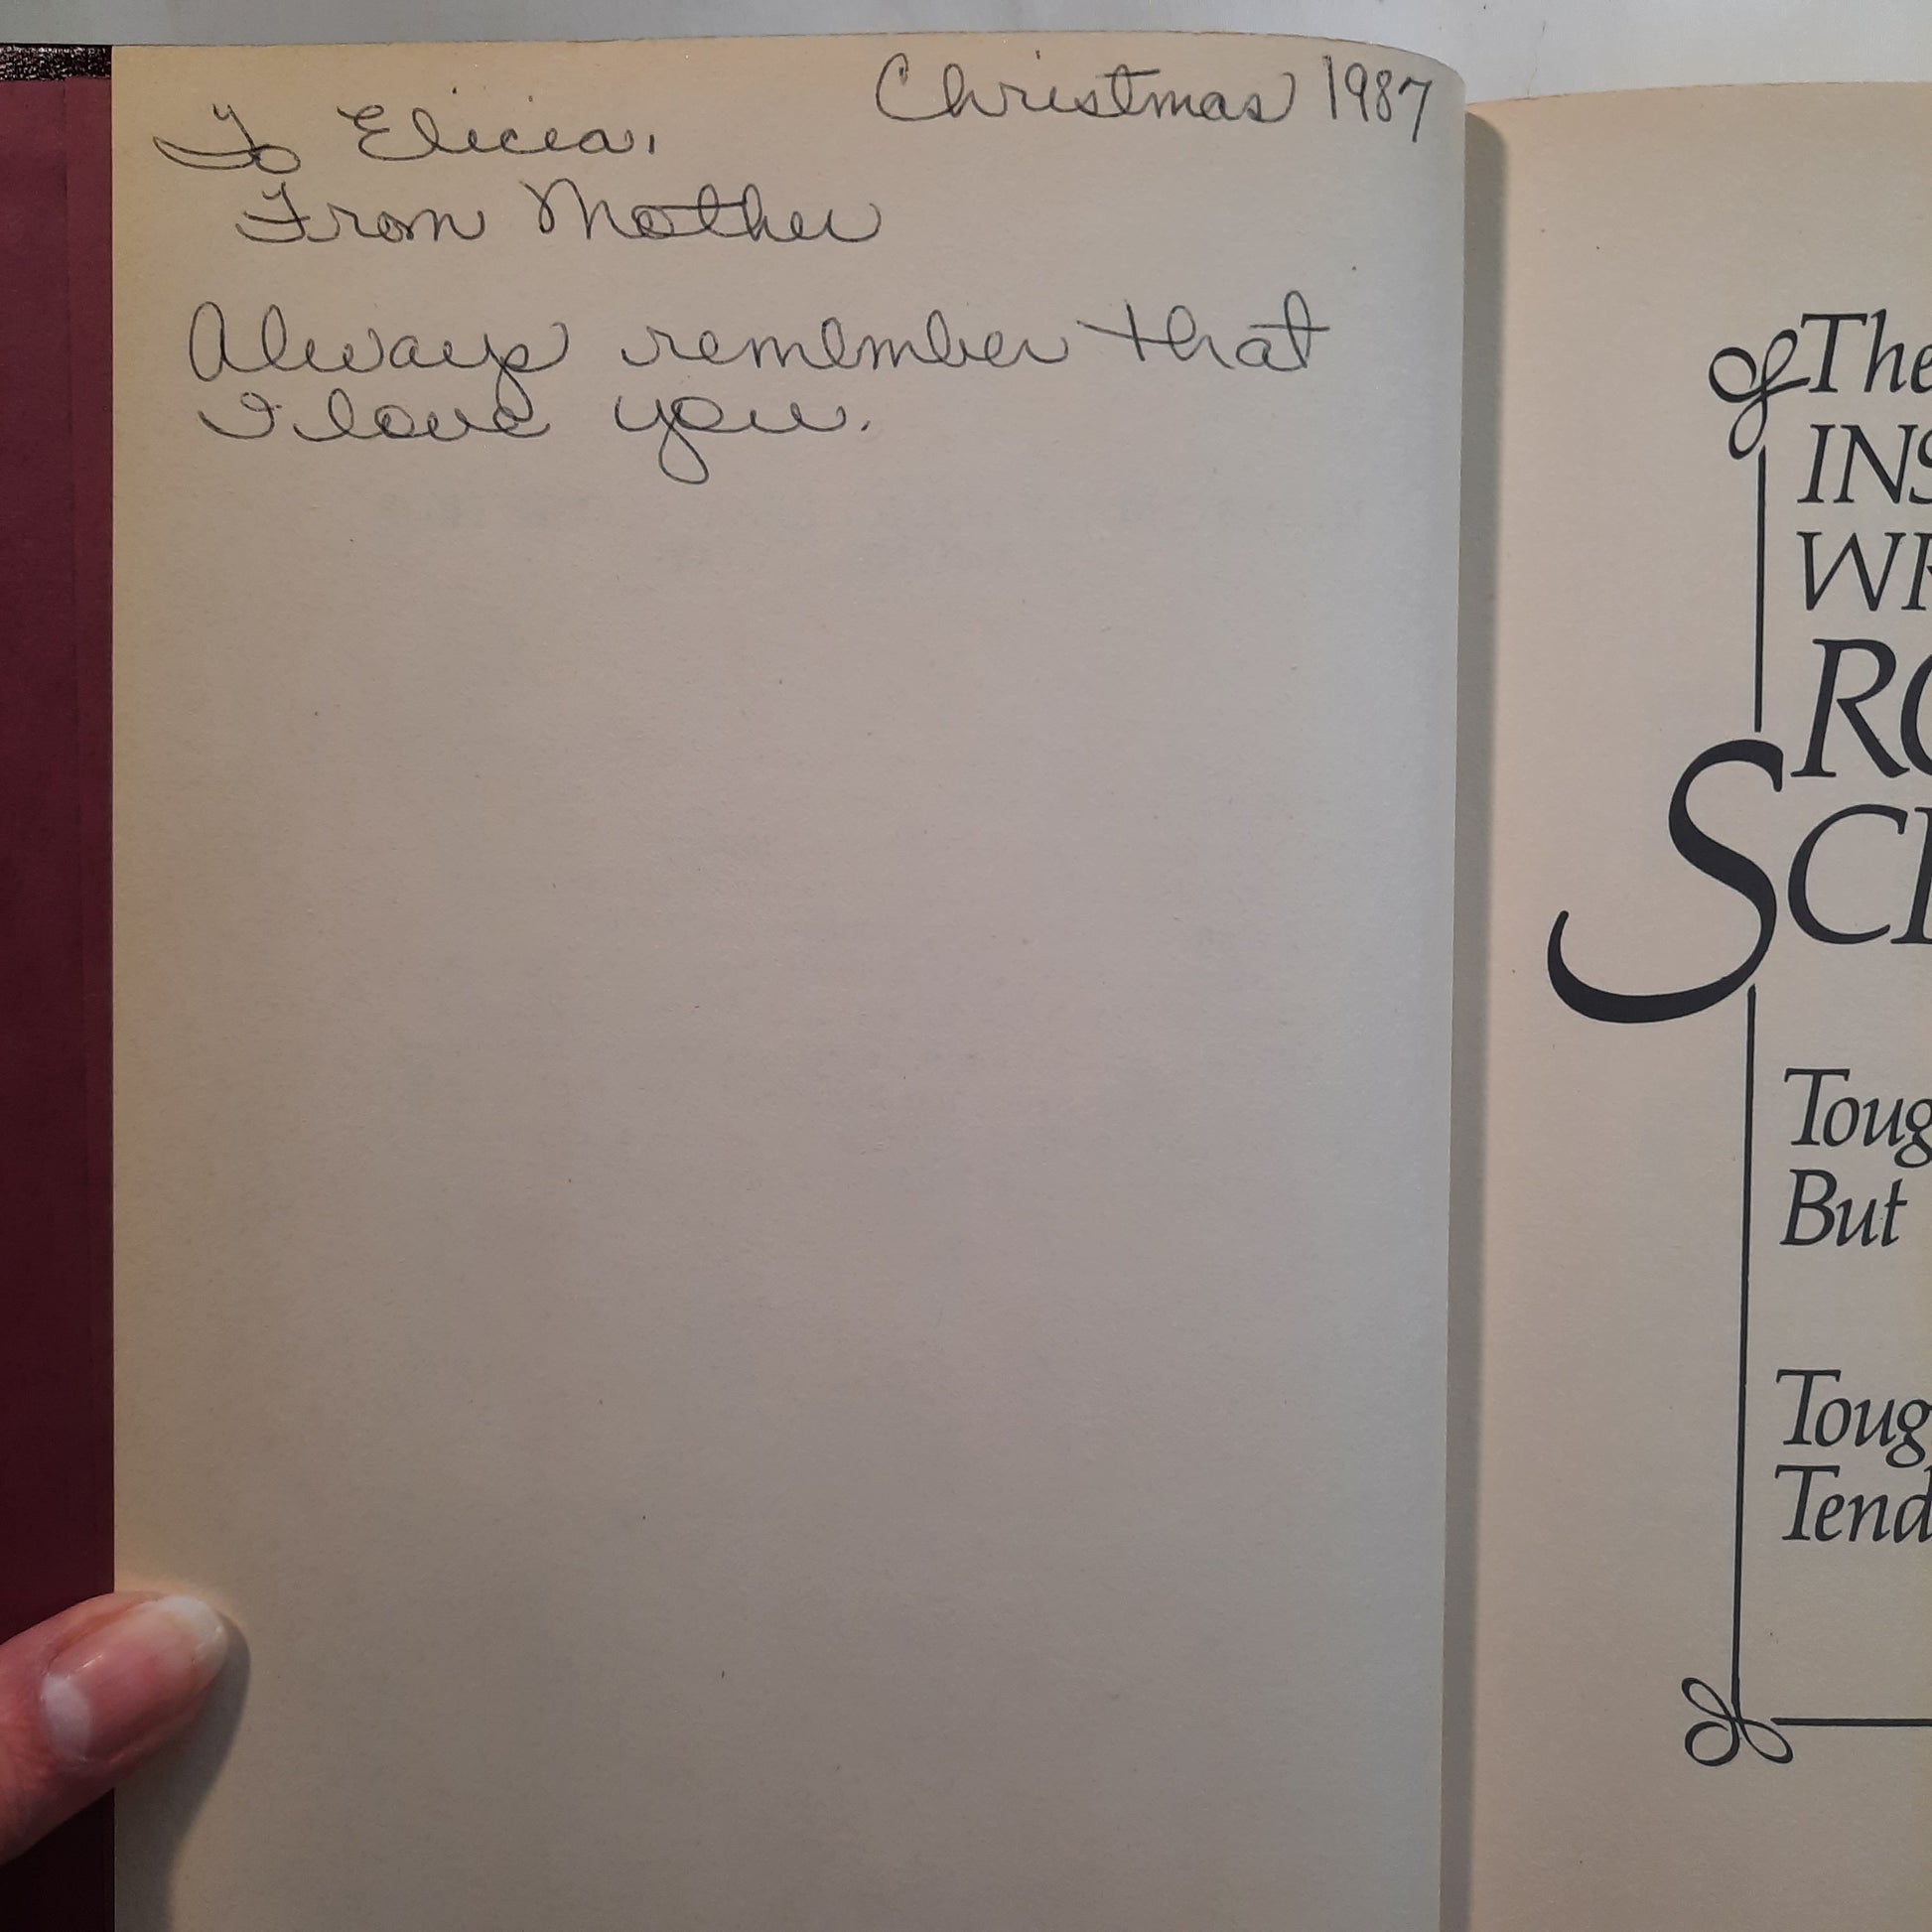 Christmas 1987
To Elicia,
From Mother
Always remember that
I love you.
The
INS
WR
RO
SCH
Toug
But
Toug
Tend